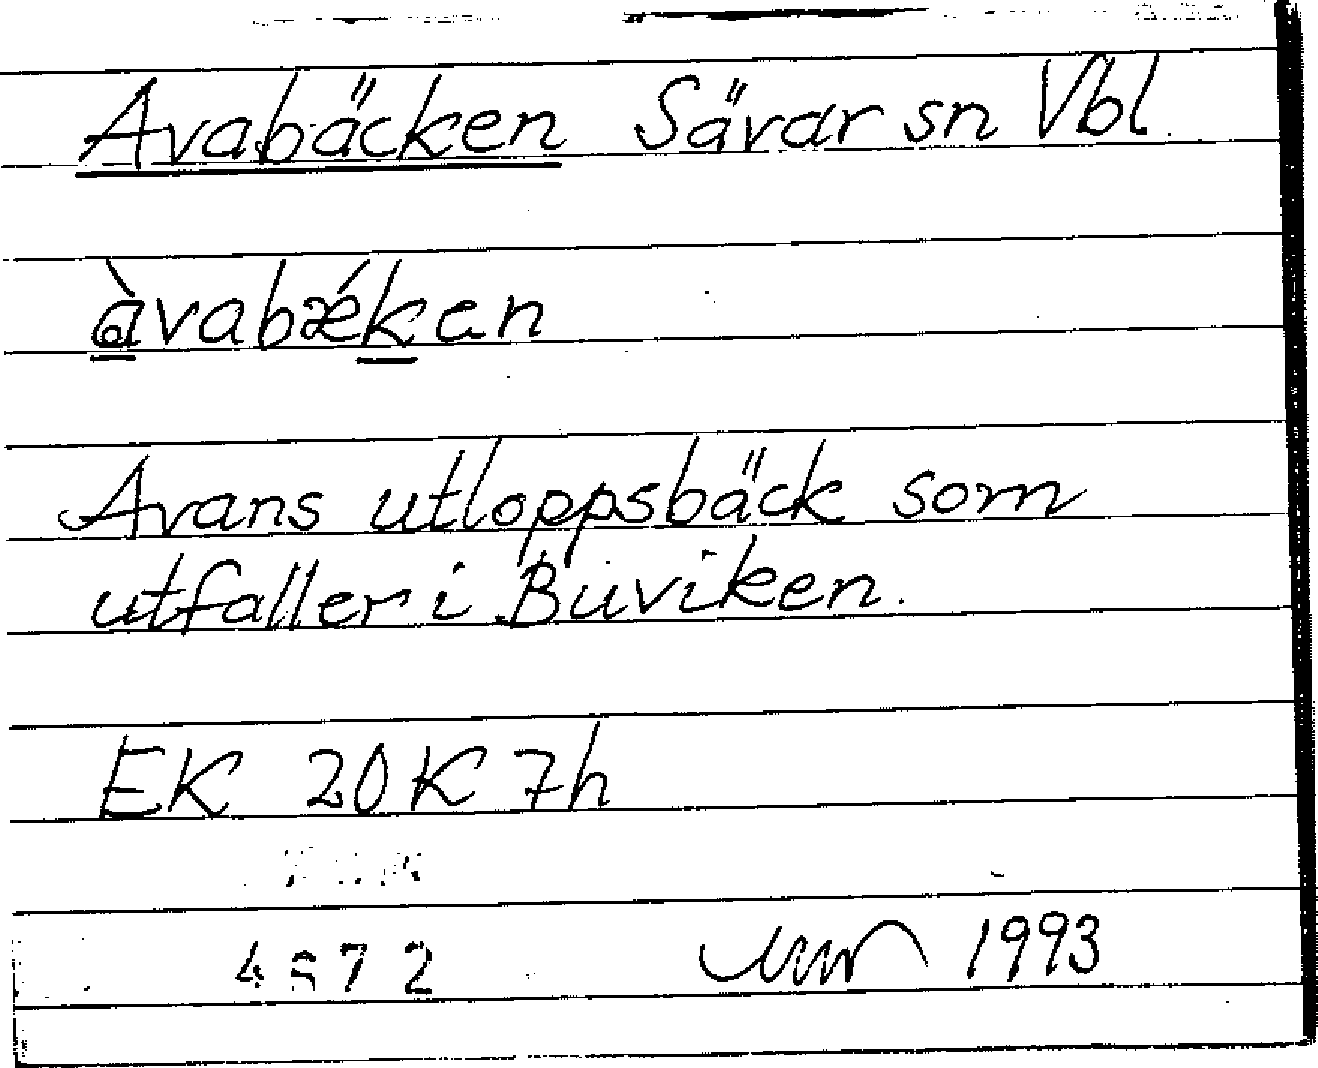 Avabäcken Sävar sn Vbl
àvabǽken
Avans utloppsbäck som
utfaller i Buviken.
EK 20K 7h
1993